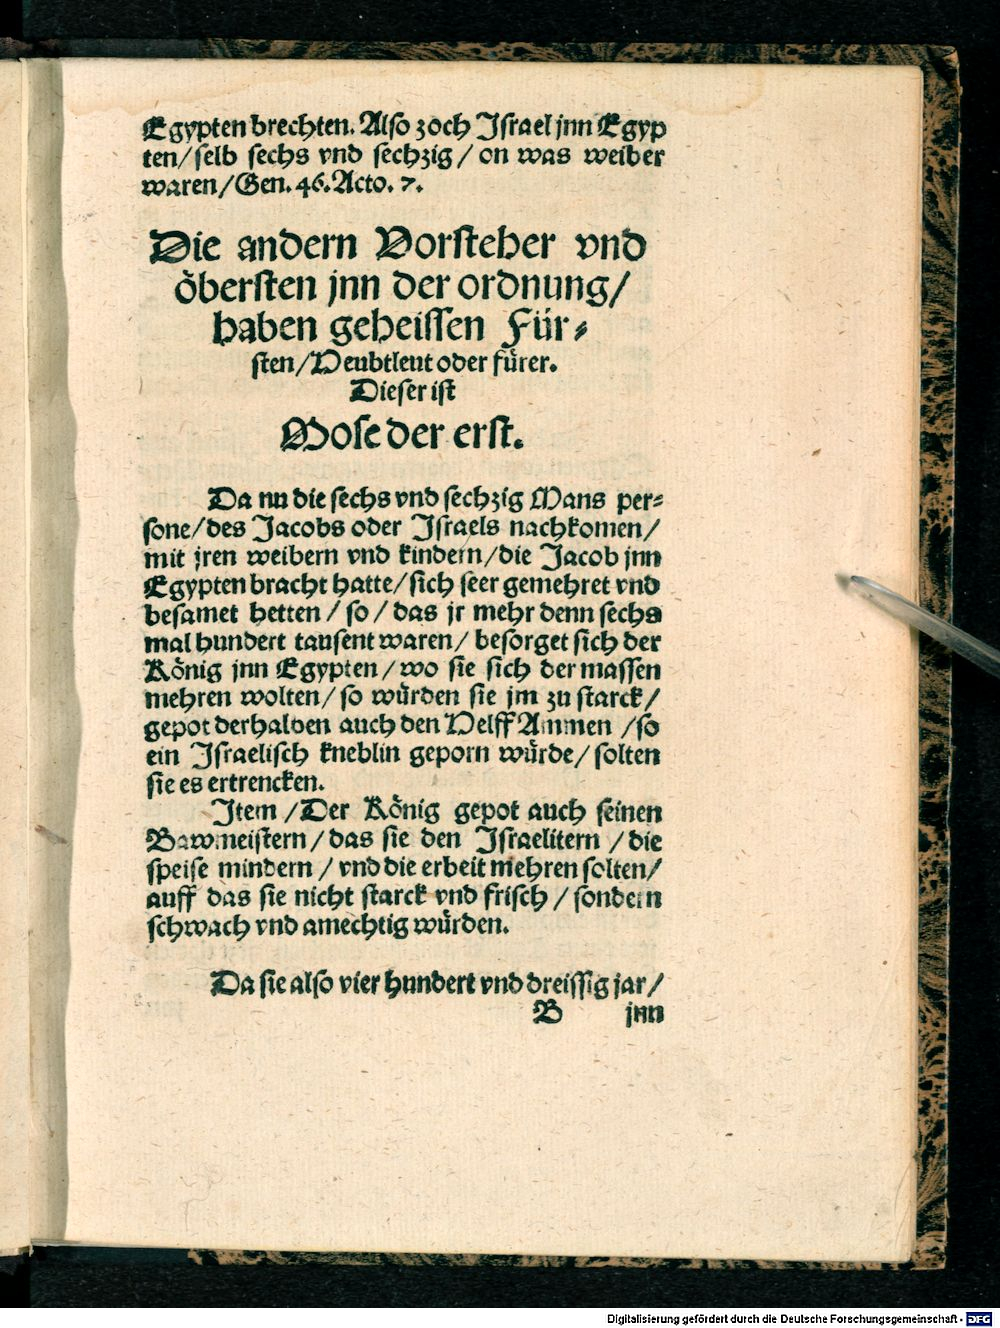 Egypten brechten. Also zoch Israel jnn Egyp
ten/ selb sechs vnd sechzig/ on was weiber
waren/ Gen. 46. Acto. 7.
Die andern Vorsteher vnd
öbersten jnn der ordnung/
haben geheissen Für⸗
sten/ Heubtleut oder fürer.
Dieser ist
Mose der erst.
Da nu die sechs vnd sechzig Mans per⸗
sone/ des Jacobs oder Israels nachkomen/
mit jren weibern vnd kindern/ die Jacob jnn
Egypten bracht hatte/ sich seer gemehret vnd
besamet hetten/ so/ das jr mehr denn sechs
mal hundert tausent waren/ besorget sich der
König jnn Egypten/ wo sie sich der massen
mehren wolten/ so würden sie jm zu starck/
gepot derhalben auch den Helff Ammen /so
ein Israelisch kneblin geporn würde/ solten
sie es ertrencken.
Item /Der König gepot auch seinen
Bawmeistern/ das sie den Israelitern /die
speise mindern/ vnd die erbeit mehren solten/
auff das sie nicht starck vnd frisch/ sondern
schwach vnd amechtig würden.
Da sie also vier hundert vnd dreissig jar/
B jnn
Digitalisierung gefördert durch die Deutsche Forschungsgemeinschaft - DFG